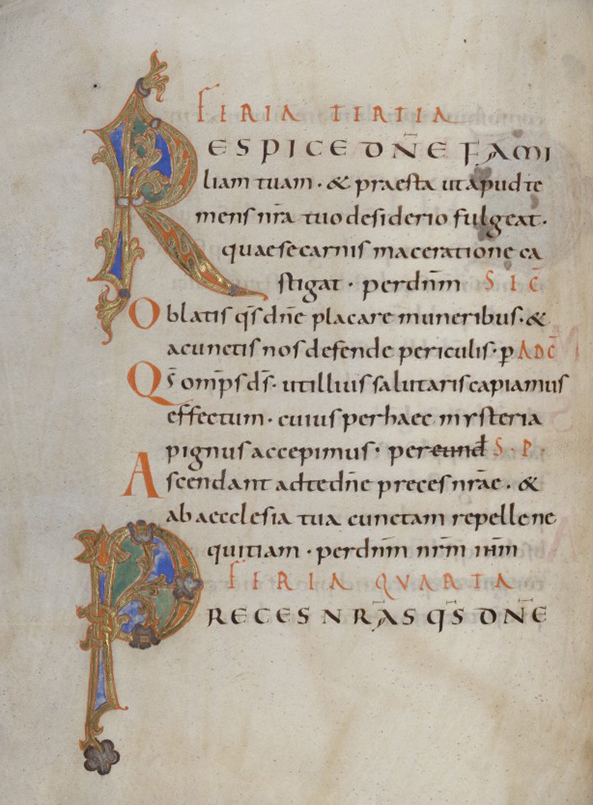 FERIA TERTIA
RESPICE DÑE FAMI
liam tuam · & praesta ut apud te
mens nr̄a tuo desiderio fulgeat ·
quae se carnis maceratione ca
stigat · per dn̄m S I C̄
Oblatis qs̄ dn̄e placare muneribus · &
a cunctis nos defende periculis · p̄ AD C̄
Qs̄ omp̄s ds̄ · ut illius salutaris capiamus
effectum · cuius per haec mysteria
pignus accepimus · per eund S · P ·
Ascendant ad te dn̄e preces nr̄ae · &
ab aecclesia tua cunctam repelle ne
quitiam · per dn̄m nr̄m
FERIA QUARTA
PRECES NR̄AS QS̄ DÑE